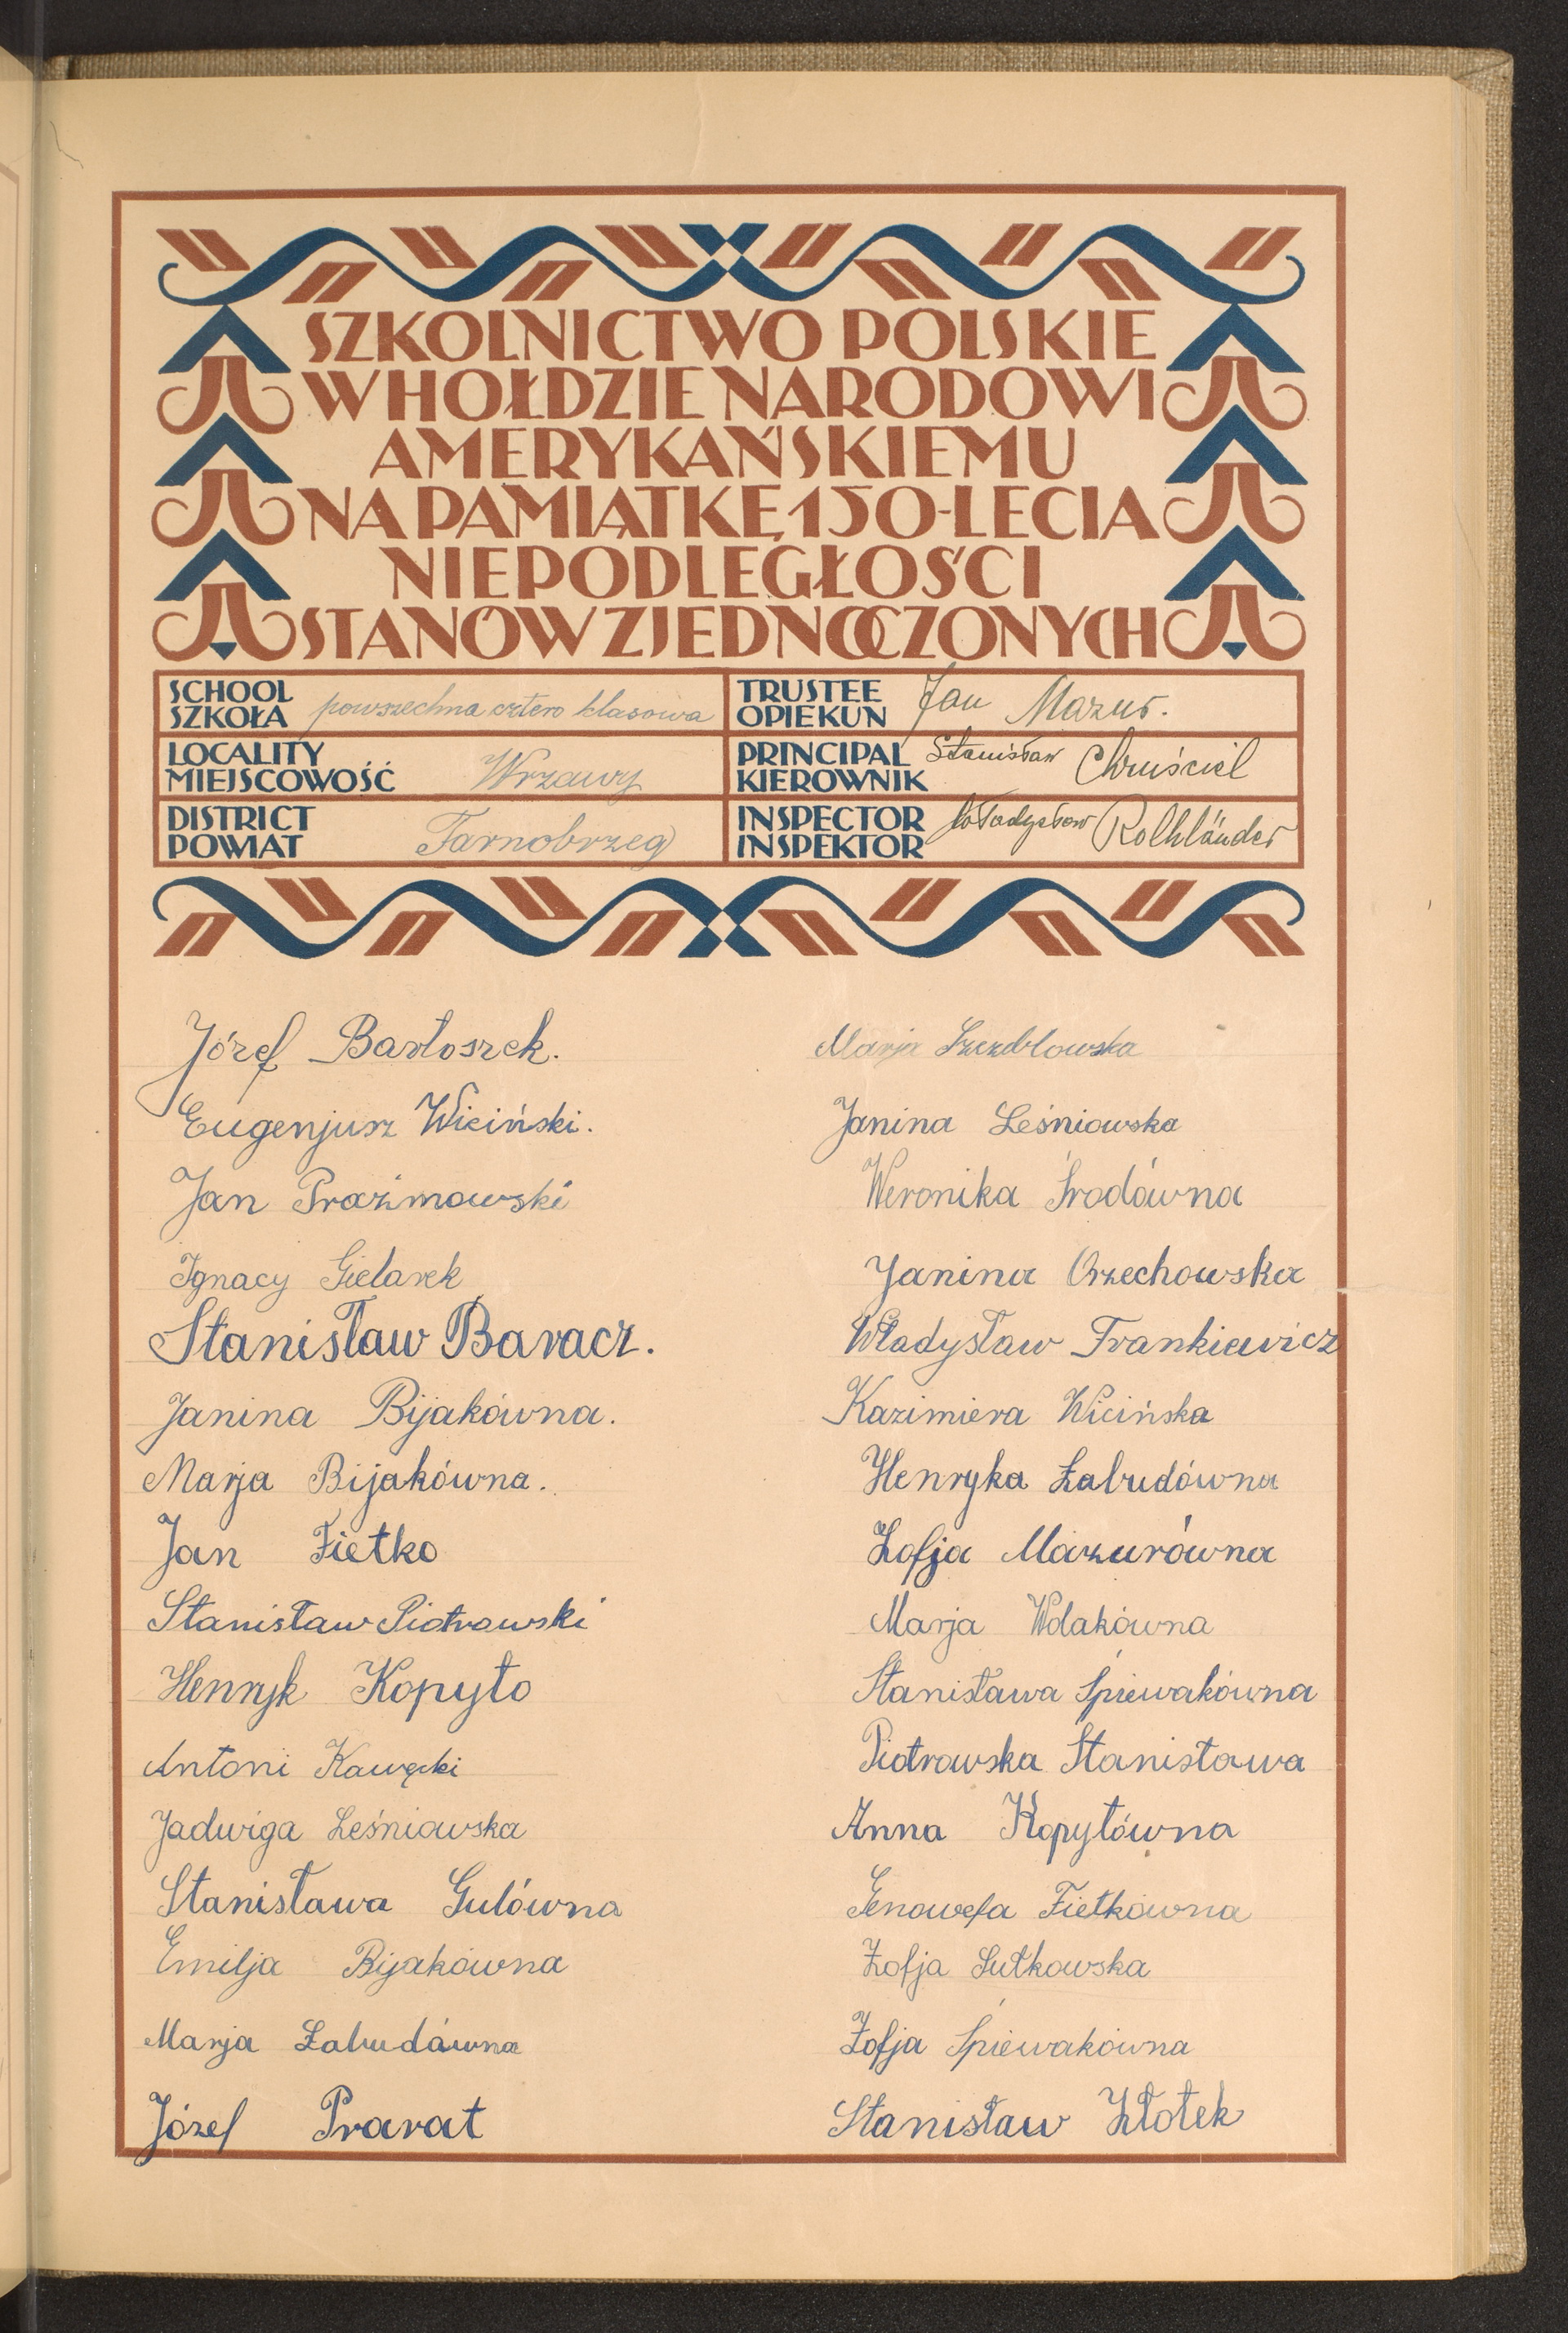 SZKOLNICTWO POLSKIE
W HOŁDZIE NARODOWI
AMERYKAŃSKIEMU
NA PAMIĄTKĘ 150-LECIA
NIEPODLEGŁOŚCI
STANÓW ZJEDNOCZONYCH
SCHOOL
SZKOŁA powszechna cztero klasowa
TRUSTEE
OPIEKUN Jan Mazur.
LOCALITY
MIEJSCOWOŚĆ Wrzawy
PRINCIPAL
KIEROWNIK Stanisław Chruściel
DISTRICT
POWIAT Tarnobrzeg
INSPECTOR
INSPEKTOR Władysław Rolhländer
Józef Bartoszek.
Eugenjusz Wiciński.
Jan Prażmowski
Ignacy Gielarek
Stanisław Baracz.
Janina Bijakówna.
Marja Bijakówna.
Jan Fietko
Stanisław Piotrowski
Henryk Kopyto
Antoni Kawęcki
Jadwiga Leśniowska
Stanisława Gulówna
Emilja Bijakówna
Marja Żabudówna
Józef Pravat
Marja
Janina Leśniowska
Weronika Środówna
Janina Orzechowska
Władysław Frankiewicz
Kazimiera Wicińska
Henryka Żabudówna
Zofja Mazurówna
Marja Wolakówna
Stanisława Śpiewakówna
Piotrowska Stanisława
Anna Kopytówna
Genowefa Fietkówna
Zofja Sutkowska
Zofja Śpiewakówna
Stanisław Złotek